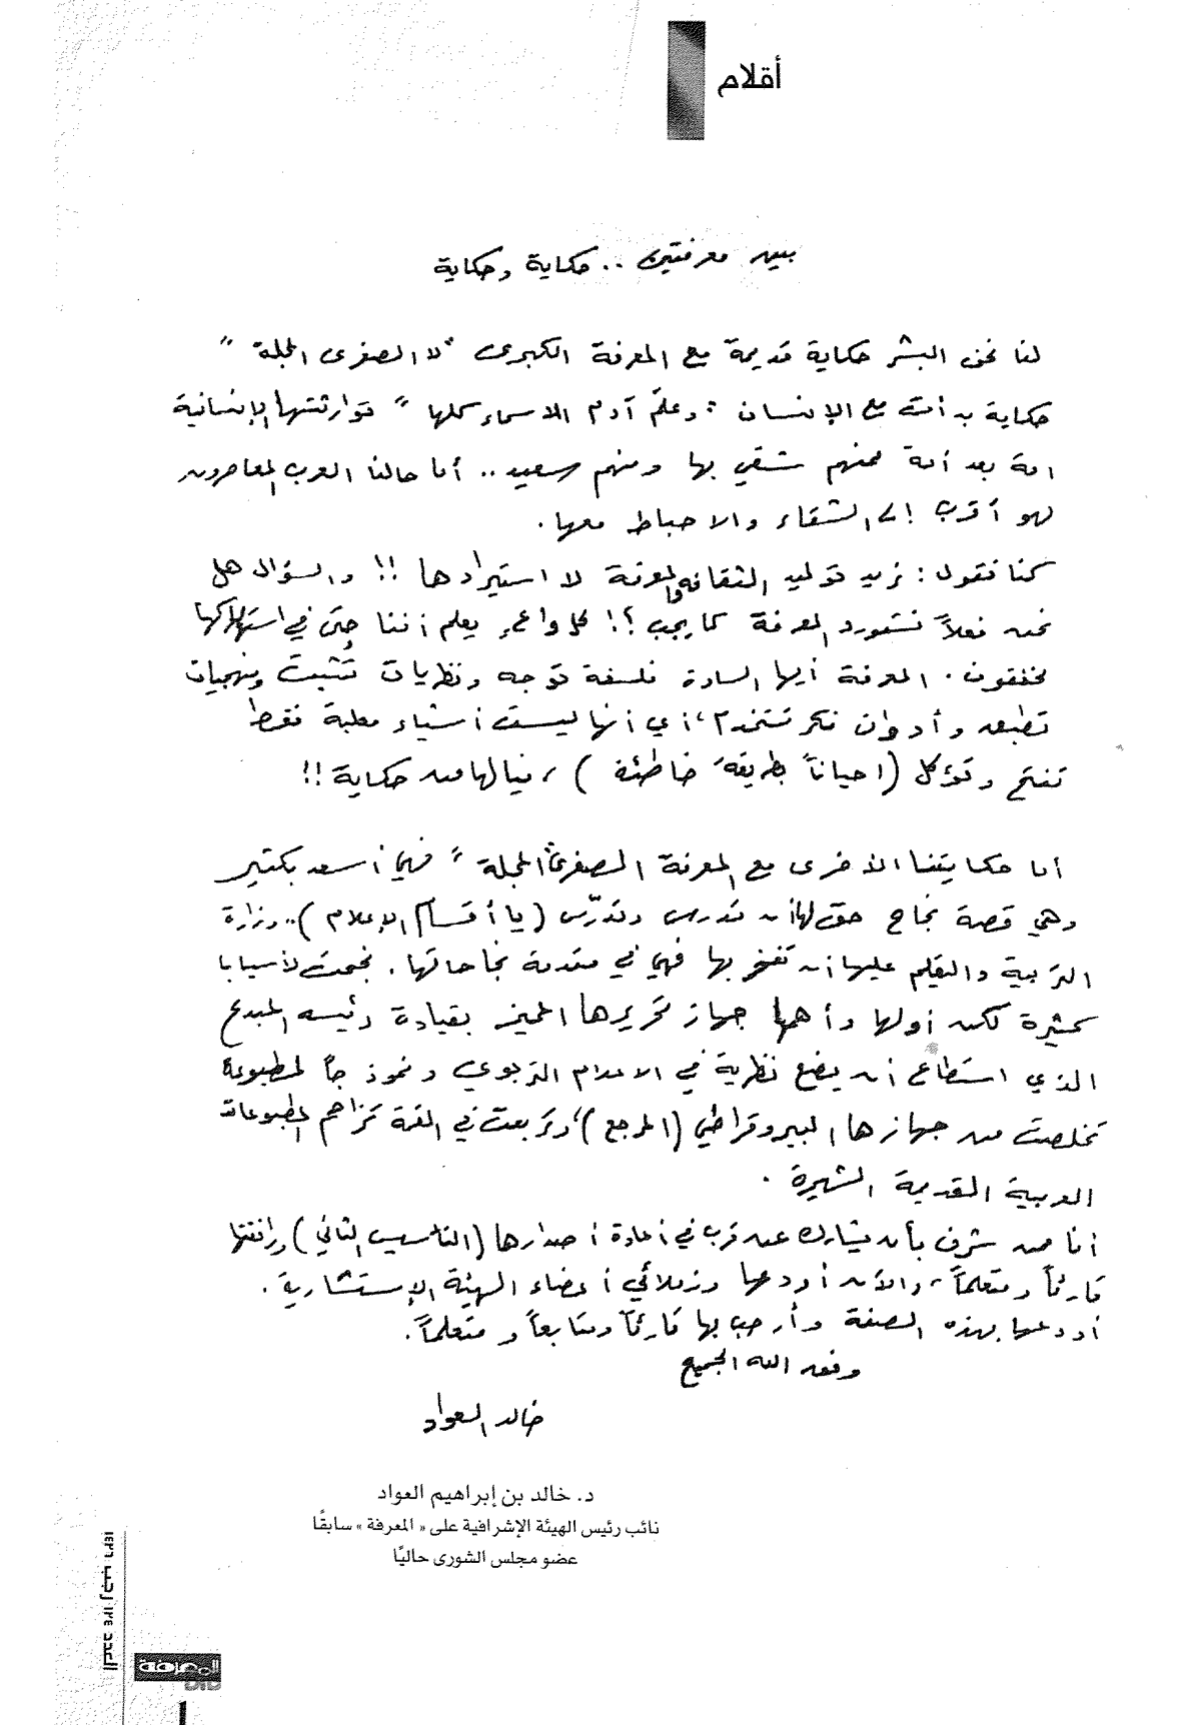 أقلام
بين معرفتين .. حكاية وحكاية
لنا نحن البشر حكاية قديمة مع المعرفة الكبرى "لا الصغرى المجلة"
حكاية بدأت مع الإنسان "وعلّم آدم الاسماء كلها" توارثتها الإنسانية
امة بعد أمة فمنهم شقي بها ومنهم سعيد .. أما حالنا العرب المعاصرون
فهو أقرب إلى الشقاء والاحباط معها.
كنا نقول: نريد توليد الثقافة والمعرفة لا استيرادها !! والسؤال هل
نحن فعلاً نستورد المعرفة كما يجب ؟! كل واعٍ يعلم أننا حتى في استهلاكها
مخفقون. المعرفة أيها السادة فلسفة توجه ونظريات تثبت ومنهجيات
تطبق وأدوات فكر تستخدم، أي أنها ليست أشياء معلبة فقط
تفتح وتؤكل (احياناً بطريقة خاطئة)، فيالها من حكاية !!
أما حكايتنا الأخرى مع المعرفة الصغرى "المجلة" فهي أسعد بكثير
وهي قصة نجاح حق لها أن تدرس وتدرّس (يا أقسام الإعلام) .. وزارة
التربية والتعليم عليها أن تفخر بها فهي في مقدمة نجاحاتها. نجحت لأسبابا
كثيرة لكن أولها وأهمها جهاز تحريرها المميز بقيادة رئيسه المبدع
الذي استطاع أن يضع نظرية في الاعلام التربوي ونموذجاً لمطبوعة
تخلصت من جهازها البيروقراطي (المرجع)، وتربعت في القمة تزاحم المطبوعات
العربية القديمة الشهيرة.
أنا ممن شرف بأن يشارك عن قرب في أعادة أصدارها (التأسيس الثاني) ورافقتها
قارئاً ومتعلماً، والآن أودعها وزملائي أعضاء الهيئة الإستشارية.
أودعها بهذه الصفة وأرحب بها قارئاً ومتابعاً ومتعلماً.
وفق الله الجميع
خالد العواد
د. خالد بن إبراهيم العواد
نائب رئيس الهيئة الإشرافية على «المعرفة» سابقًا
عضو مجلس الشورى حاليًا
العدد ١٢٤ رجب ١٤٢٦
المعرفة